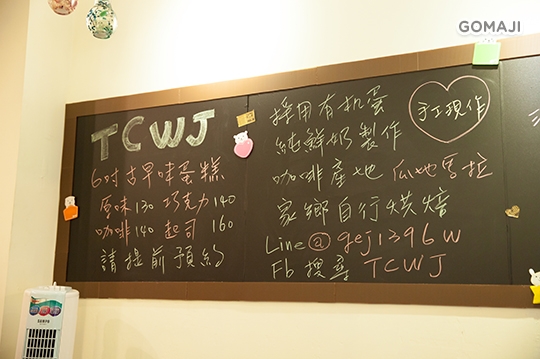 GOMAJI
TCWJ
6吋古早味蛋糕
原味130 巧克力140
咖啡140 起司 160
請提前預約
採用有机蛋
純鮮奶製作
咖啡產地 瓜地馬拉
家鄉自行烘焙
Line@ gej1396w
Fb 搜尋 TCWJ
手工現作